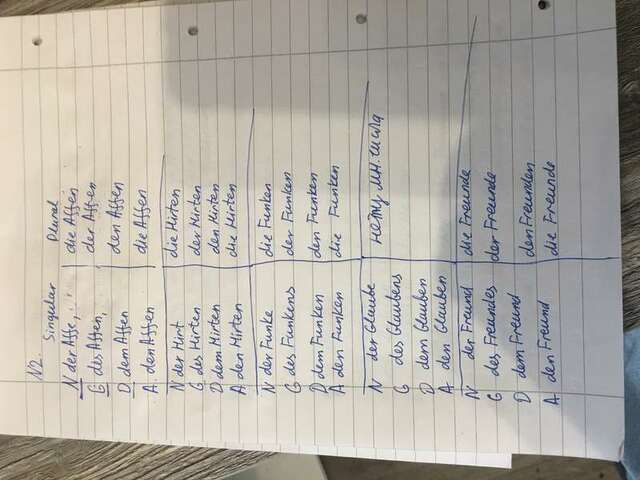 N2.
Singular Plural
N der Affe, die Affen
G des Affen, der Affen
D dem Affen den Affen
A. den Affen die Affen
N der Hirt die Hirten
G des Hirten der Hirten
D dem Hirten den Hirten
A den Hirten die Hirten
N der Funke die Funken
G des Funkens der Funken
D dem Funken den Funken
A den Funken die Funken
N der Glaube нету мн. числа
G des Glaubens
D dem Glauben
A den Glauben
N der Freund die Freunde
G des Freundes der Freunde
D dem Freund den Freunden
A den Freund die Freunde